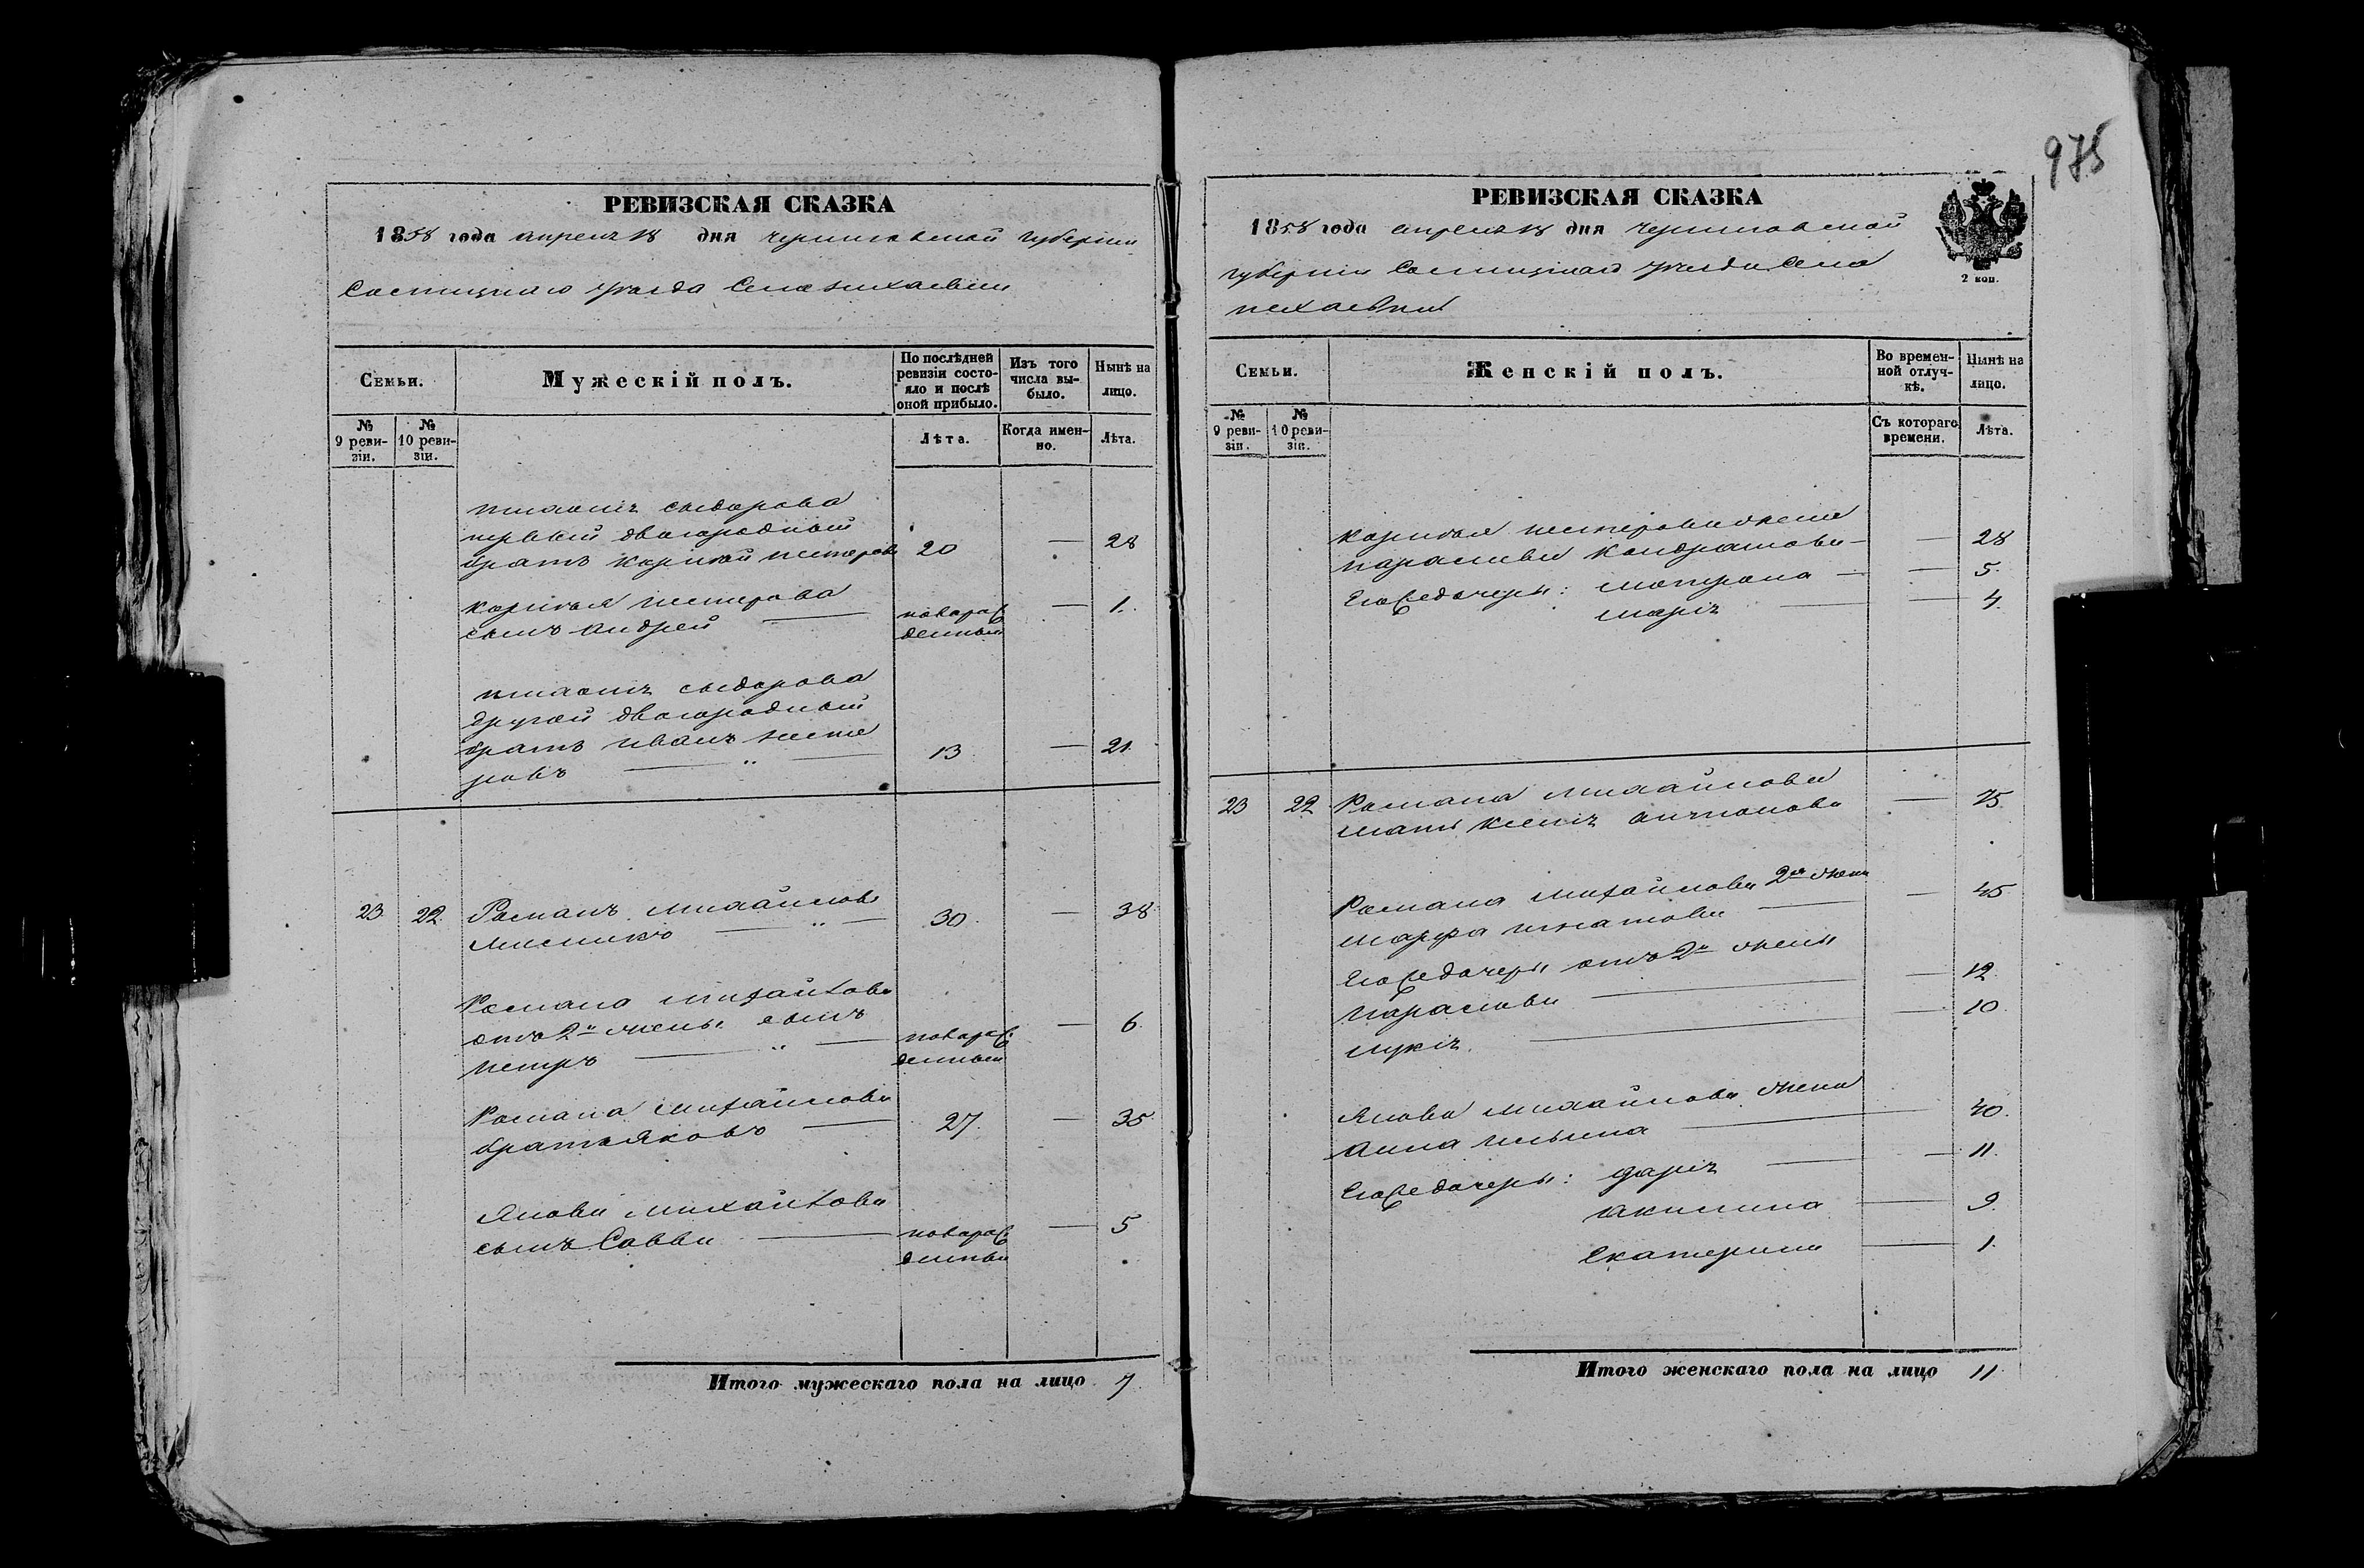 975
РЕВИЗСКАЯ СКАЗКА
1858 года апреля 18 дня черниговской губернии
Сосницкаго уезда Села пехаевки
Семьи.
Мужескій полъ.
По послѣдней ревизіи состояло и послѣ оной прибыло.
Изъ того числа выбыло.
Нынѣ на лицо.
№ 9 ревизіи.
№ 10 ревизіи.
Лѣта.
Когда именно.
Лѣта.
сыдорова
первый двоюродный
братъ нестеровъ 20 — 28
нестерова
сынъ андрей — новорож — 1.
денный
сыдорова
другой двоюродный
братъ иванъ несте 13 — 21.
ровъ — „ —
23. 22. Романъ михайловъ 30. — 38.
мисникъ — „ —
Романа михайлова
отъ 2й жены сынъ — 6.
петръ — „ — новорож
денный
Романа михайлова 27. — 35.
братъ яковъ —
Якова михайлова
сынъ Савва — новорож — 5
денный
Итого мужескаго пола на лицо 7
РЕВИЗСКАЯ СКАЗКА
1858 года апреля 18 дня черниговской
губернии Сосницкаго уезда Села
пехаевки
2 коп.
Семьи.
Женскій полъ.
Во временной отлучкѣ.
Нынѣ на лицо.
№ 9 ревизіи.
№ 10 ревизіи.
Съ котораго времени.
Лѣта.
нестерова жена
парасковия кондратова — — 28
Его же дочери: мотрона — — 5.
марія — — 4.
23 22 Романа михайлова — 75.
мать ксенія антонова
Романа михайлова 2я жена — 45
марфа игнатова —
Его же дочери отъ 2й жены
парасковия — — 12.
лукія. — — 10.
Якова михайлова жена
анна ильина — 40.
Его же дочери: дарія — — 11.
акилина — 9.
Екатерина — 1.
Итого женскаго пола на лицо 11.